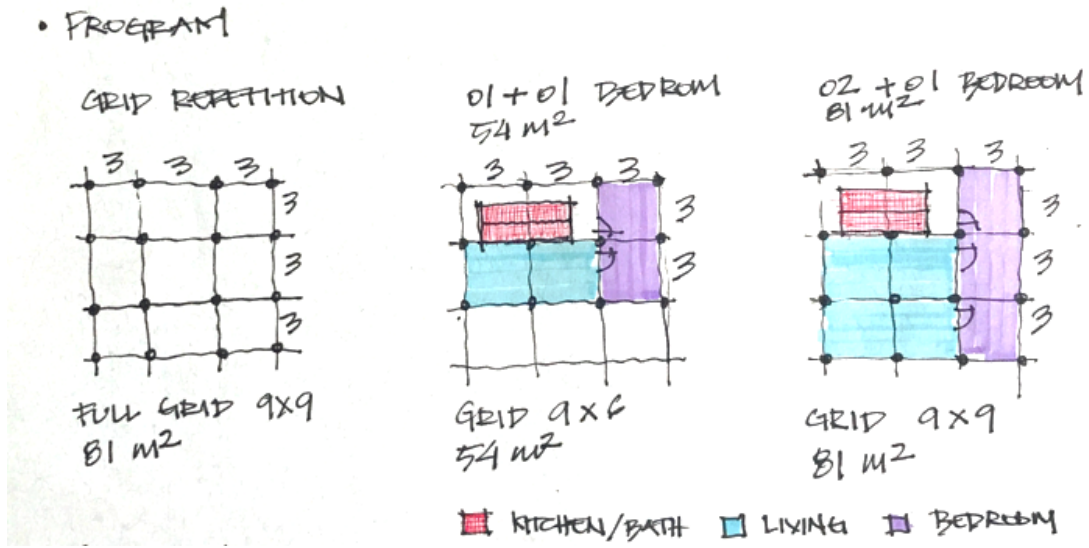 • PROGRAM
GRID REPETITION
3 3 3
3
3
3
FULL GRID 9X9
81 m²
01 + 01 BEDROM
54 m²
3 3 3
3
3
GRID 9X6
54 m²
02 + 01 BEDROOM
81 m²
3 3 3
3
3
3
GRID 9X9
81 m²
KITCHEN/BATH LIVING BEDROOM